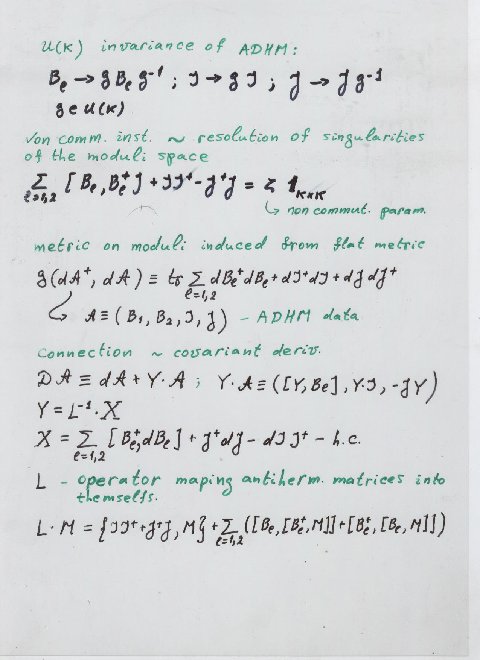 U(K) invariance of ADHM:
Bₑ → g Bₑ g⁻¹ ; I → g I ; J → J g⁻¹
g ∈ U(K)
Non comm. inst. ~ resolution of singularities
of the moduli space
Σ [Bₑ, Bₑ⁺] + II⁺ - J⁺J = ζ 1ₖₓₖ
ℓ=1,2
↳ non commut. param.
metric on moduli induced from flat metric
g(dA⁺, dA) ≡ tr Σ dBₑ⁺dBₑ + dI⁺dI + dJ dJ⁺
ℓ=1,2
↳ A ≡ (B₁, B₂, I, J) - ADHM data
Connection ~ covariant deriv.
DA ≡ dA + Y·A ; Y·A ≡ ([Y, Bₑ], Y·I, -JY)
Y = L⁻¹·X
X = Σ [Bₑ⁺, dBₑ] + J⁺dJ - dI I⁺ - h.c.
ℓ=1,2
L - operator maping antiherm. matrices into
themselfs.
L·M = {II⁺+J⁺J, M} + Σ ([Bₑ,[Bₑ⁺,M]]+[Bₑ⁺,[Bₑ,M]])
ℓ=1,2